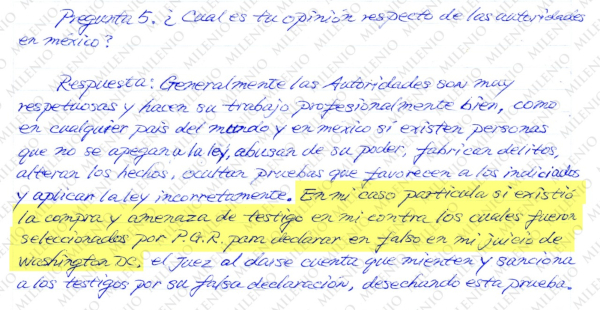 Pregunta 5. ¿Cual es tu opinión respecto de las autoridades
en méxico?
Respuesta: Generalmente las Autoridades son muy
respetuosas y hacen su trabajo profesionalmente bien, como
en cualquier país del mundo y en méxico si existen personas
que no se apegan a la ley, abusan de su poder, fabrican delitos,
alteran los hechos, ocultan pruebas que favorecen a los indiciados
y aplicar la ley incorretamente. En mi caso particula si existió
la compra y amenaza de testigo en mi contra los cuales fueron
seleccionados por P.G.R. para declarar en falso en mi juicio de
Washington DC, el Juez al darse cuenta que mienten y sanciona
a los testigos por su falsa declaración, desechando esta prueba.
MILENIO